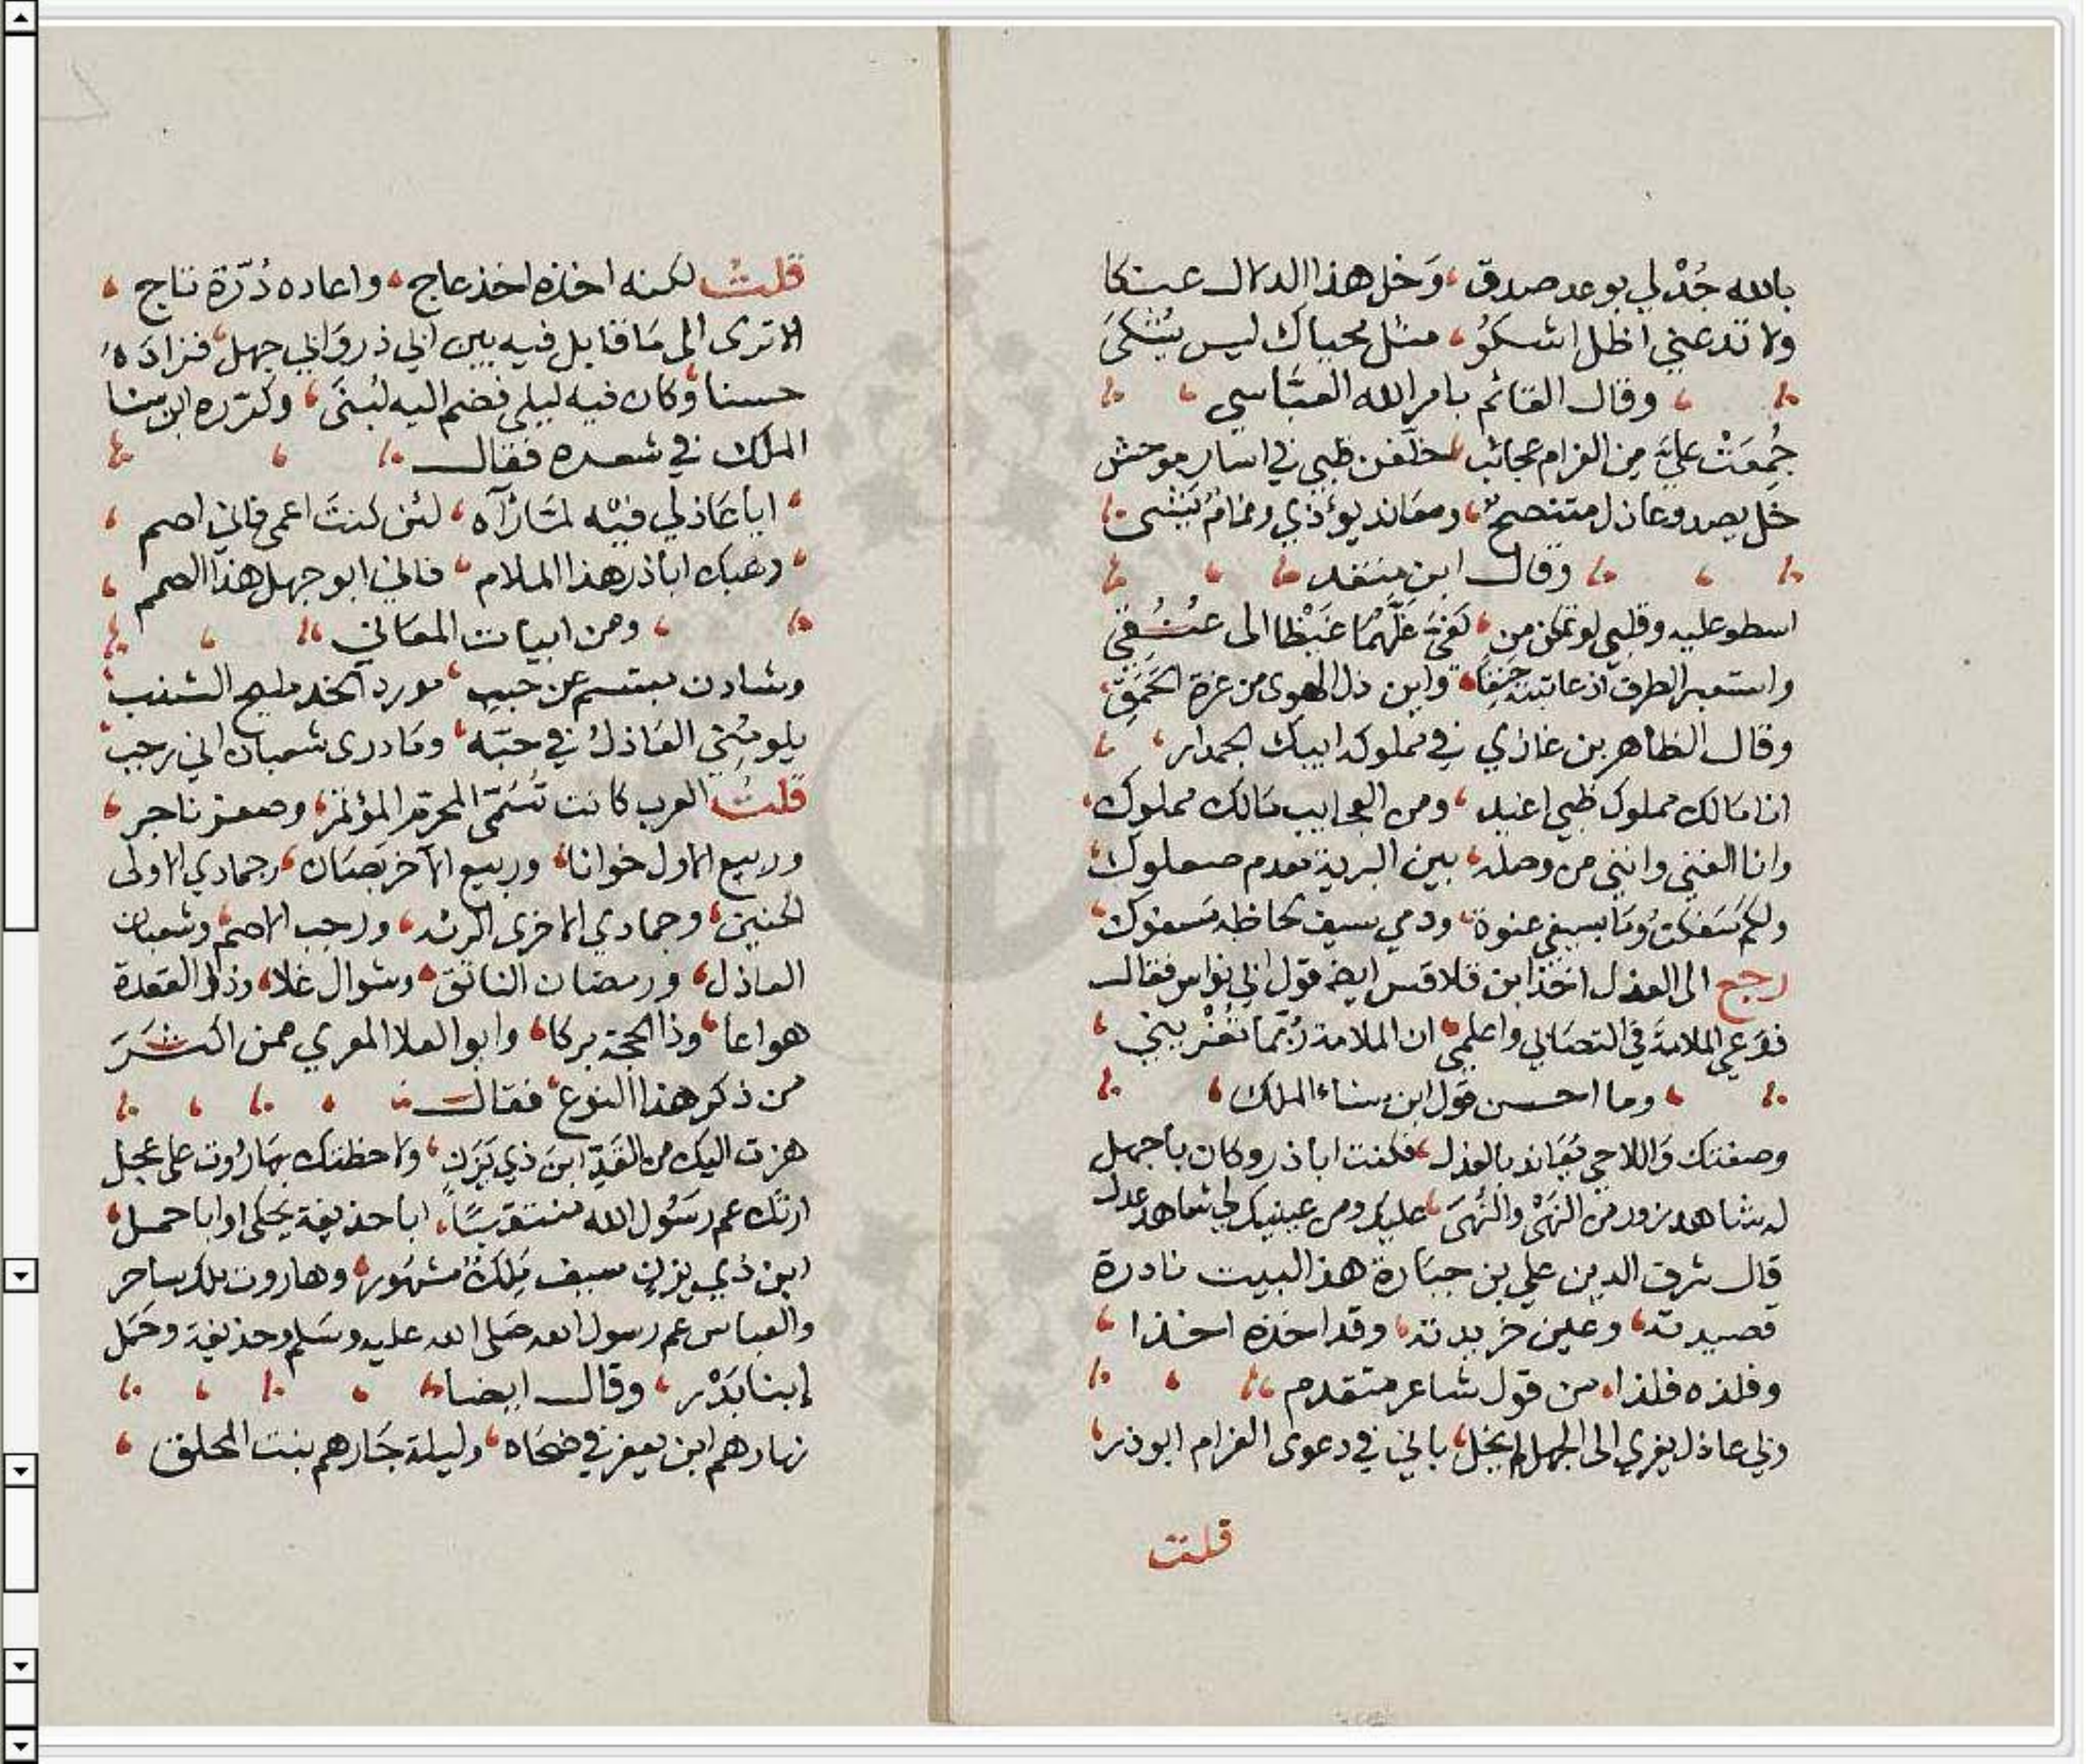 بالله جُدْ لي بوعد صدق، وَخل هذا الدلال عنكا
ولا تدعني اظل اشكوُ، مثل محياك ليس يُشكىَ
وقال القائم بامر الله العبَّاسي
جُمِعَتْ عليَّ من الغرام عجائب، خلّفن ظبي في اسار موحش
خل يصد وعاذل متنصح، ومعاند يوءذي ونمامُ يَشى
وقال ابن منقد
اسطو عليه وقلبي لو تمكن من، كفيَّ غلّهُمَا غَيْظا الى عُنُقي
واستعير الطرف اذ عاتبته حَنِقا، واين ذل الهوى من عزة الحَمَقِ
وقال الظاهر بن غازي في مملوكه ايبك الجمدار
انا مَالك مملوك ظبي اغيد، ومن العجايب مَالك مملوك
وانا الغني وانني من وصله، بين البرية معدم صعلوك
ولكم سَفكتُ دمَا بسيفي عنوة، ودمي بسيف لحاظه مَسفوك
رجع الى العذل اخذ ابن قلاقس ايضا قول ابي نواس فقال
فدَعي الملامَة في التصَابي واعلمي، ان الملامة رُبّما تُغْريني
وما احسن قول ابن سناء الملك
وصفتك وَاللاحي يُعَاند بالعذل، فكنت ابا ذر وكان باجهل
له شاهد زور من النَهْي والنُهَى، عليك ومن عينيك لي شاهد عدل
قال شرف الدين علي بن جبَارة هذا البيت نادرة
قصيدته، وعين خريدته، وقد اخذه اخذا
وفلذه فلذا، من قول شاعر متقدم
ولي عاذل يغري الى الجهل لم يخل، باني في دعوى الغرام ابوذر
قلت
قلتُ لكنه اخذه اخذ عاج، واعاده دُرّة تاج
الا ترى الى مَا قابل فيه بين ابي ذر وَابي جهل، فزادَهُ
حسنا، وكان فيه ليلى فضم اليه لبْنىَ، وكرّره ابن سنا
الملك في شعره فقال
ايا عَاذلي فيْه لمَا رَآه، لئن كنتَ اعمى فاني اصم
وهبك اباذر هذا الملام، فاني ابو جهل هذا الصمم
ومن ابيات المعَاني
وشادن مبتسم عن حبب، مورد الخد مليح الشنب
يلومُني العَاذلُ في حبّه، ومَا درى شعبان اني رجب
قلتُ العرب كانت تُسَمّى المحرم المؤتمر، وصفر ناجر
وربيع الاول خوانا، وربيع الآخر بصَان، وجمادي الاولى
الحنين، وجمادي الاخرى الرنه، ورجب الاصم، وشعبان
العاذل، ورمضان الناتق، وشوال غلا، وذو القعدة
هواعا، وذا الحجة بركا، وابو العلا المعري ممن اكثَرَ
من ذكر هذا النوع، فقال
هزت اليك من القَدّ ابنَ ذي يَزَنِ، ولاحظتك بهَارُوت على عجل
ارتك عم رَسُول الله منتقبًا، ابا حذيفة يحكي او ابا حمل
ابن ذي يزن سيف مَلِكُ مشهُور، وهاروت ملك ساحر
والعباس عم رسول الله صَلى الله عليه وسَلم وحذيفة وحَمَل
إبنا بَدْر، وقال ايضا
نهارهم ابن يعفر في ضحَاه، وليلة جَارهم بنت المحلق